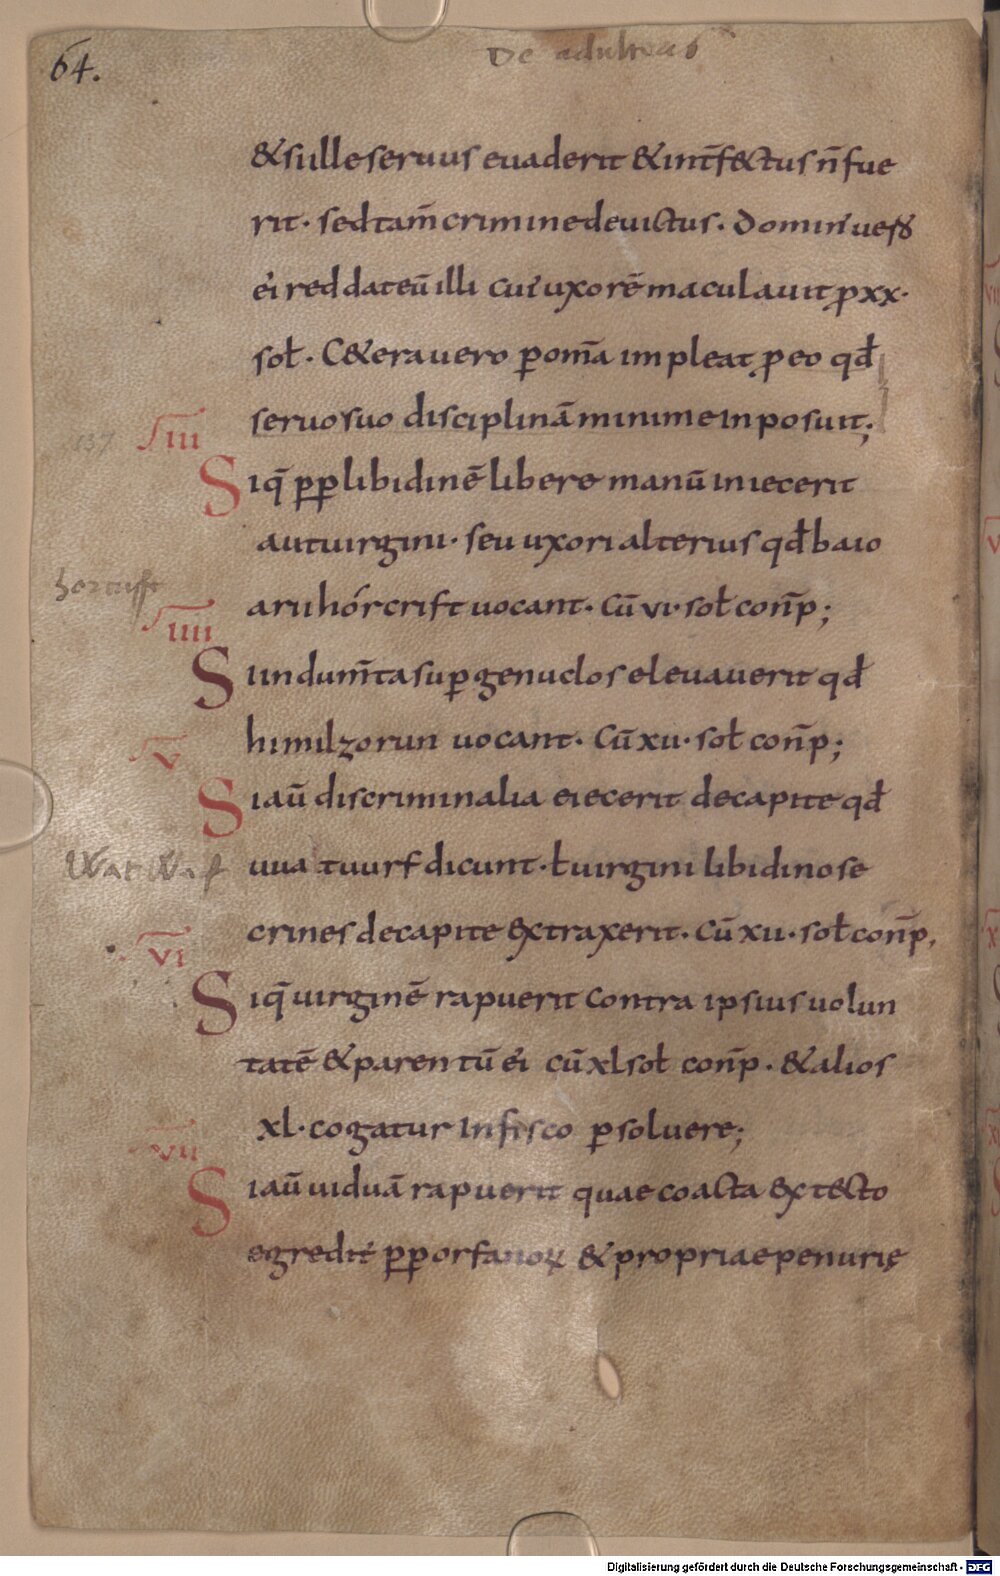 64.
De adulteris
&si ille seruus euaderit & int̄fectus n̄ fue
rit· sed tam̄ crimine deuictus· Dominus uest̄
ei reddat eū illi cui uxorē maculauit p xx·
sol̄· C&era uero p̱ om̄a impleat p eo qd̄
seruo suo disciplinā minime inposuit;
137
III
Siq̄ pp libidinē libere manū iniecerit
aut uirgini· seu uxori alterius qd̄ baio
arii hórcrift uocant· Cū VI· sol̄ con̄p;
IIII
Si indum̄ta sup̱ genuclos eleuauerit qd̄
himilzorun uocant· Cū XII· sol̄ con̄p;
V
Si aū discriminalia eiecerit de capite qd̄
uua tuurf dicunt· ł uirgini libidinose
crines de capite extraxerit· Cū XII· sol̄ con̄p,
VI
Siq̄ uirginē rapuerit contra ipsius uolun
tatē & parentū ei cū XL sol̄ con̄p· & alios
XL· cogatur in fisco p̱soluere;
VII
Si aū uiduā rapuerit quae coacta ex tecto
egredit̄ pp orfanoꝝ & propriae penurię
Digitalisierung gefördert durch die Deutsche Forschungsgemeinschaft - DFG